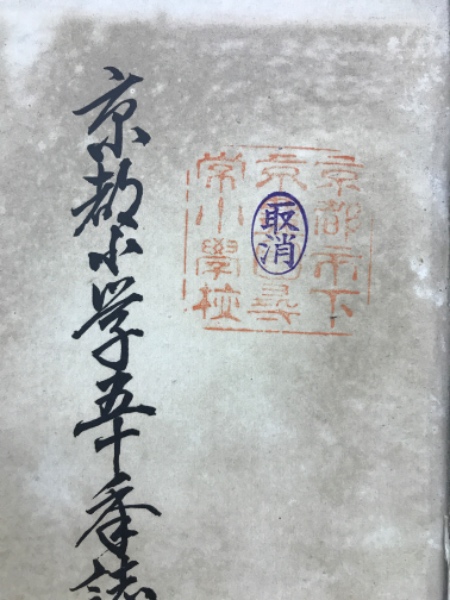 京都市下
京尋
常小學校
取消
京都小学五十年誌